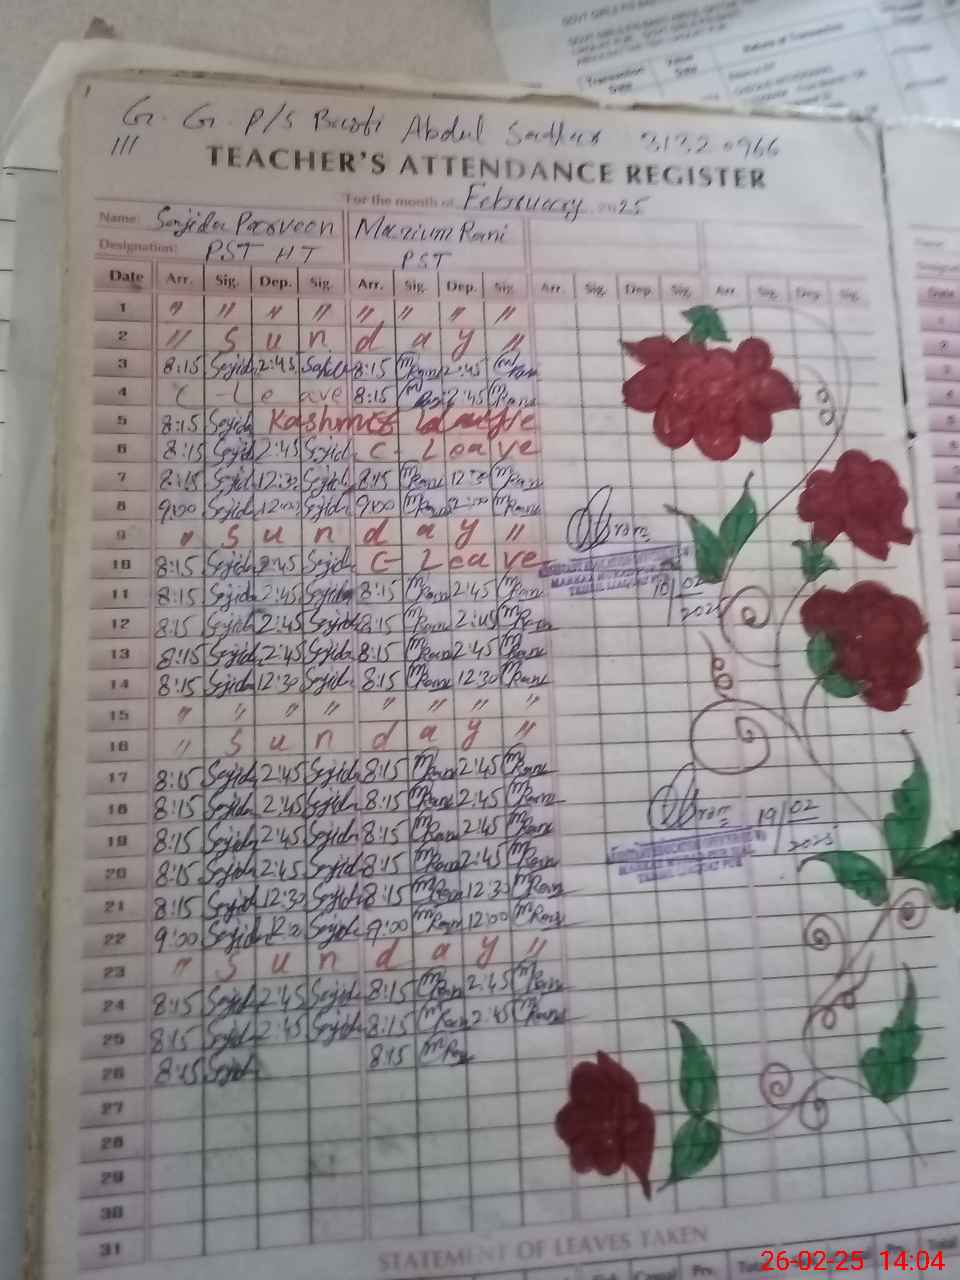 GOVT GIRLS P/S
Nature of Transaction
Transaction Date
Value Date
G. G. P/S Basti Abdul Sadhar 31320966
111
TEACHER'S ATTENDANCE REGISTER
For the month of February 2025
Name: Sajida Parveen Marium Rani
Designation: PST HT PST
Date Arr. Sig. Dep. Sig. Arr. Sig. Dep. Sig. Arr. Sig. Dep. Sig. Arr. Sig. Dep. Sig.
1 " " " " " " " "
2 " S u n d a y "
3 8:15 Sajida 2:45 Sajida 8:15 MRani 2:45 MRani
4 C - Leave 8:15 MRani 2:45 MRani
5 8:15 Sajida Kashmir
6 8:15 Sajida 2:45 Sajida C - Leave
7 8:15 Sajida 12:30 Sajida 8:15 MRani 12:30 MRani
8 9:00 Sajida 12:00 Sajida 9:00 MRani 12:00 MRani
9 " S u n d a y "
10 8:15 Sajida 2:45 Sajida C - Leave
11 8:15 Sajida 2:45 Sajida 8:15 MRani 2:45 MRani
10/02/2025
12 8:15 Sajida 2:45 Sajida 8:15 MRani 2:45 MRani
13 8:15 Sajida 2:45 Sajida 8:15 MRani 2:45 MRani
14 8:15 Sajida 12:30 Sajida 8:15 MRani 12:30 MRani
15 " " " " " " " "
16 " S u n d a y "
17 8:15 Sajida 2:45 Sajida 8:15 MRani 2:45 MRani
18 8:15 Sajida 2:45 Sajida 8:15 MRani 2:45 MRani
19 8:15 Sajida 2:45 Sajida 8:15 MRani 2:45 MRani
19/02/2025
20 8:15 Sajida 2:45 Sajida 8:15 MRani 2:45 MRani
21 8:15 Sajida 12:30 Sajida 8:15 MRani 12:30 MRani
22 9:00 Sajida Sajida 9:00 MRani 12:00 MRani
23 " S u n d a y "
24 8:15 Sajida 2:45 Sajida 8:15 MRani 2:45 MRani
25 8:15 Sajida 2:45 Sajida 8:15 MRani 2:45 MRani
26 8:15 Sajida 8:15 MRani
27
28
29
30
31
STATEMENT OF LEAVES TAKEN
26-02-25 14:04